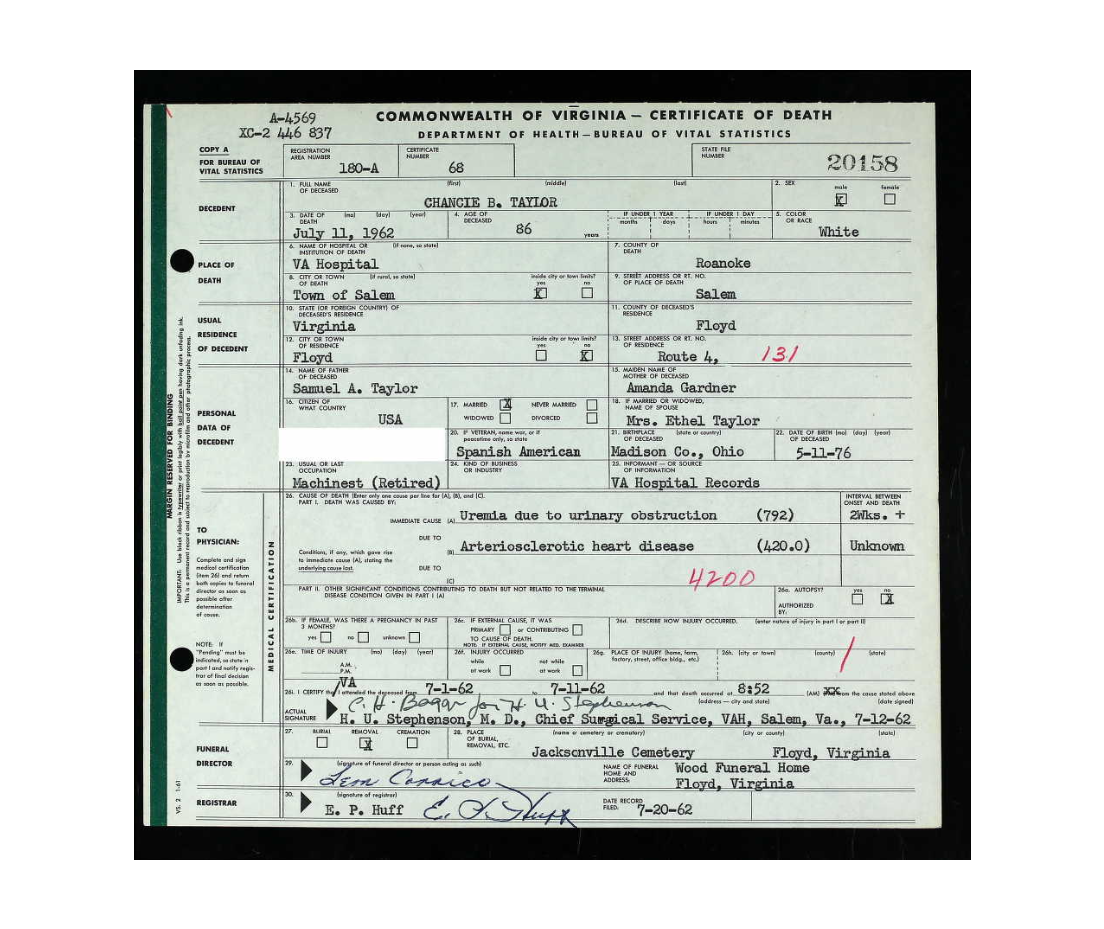 A-4569
XC-2 446 837
COMMONWEALTH OF VIRGINIA — CERTIFICATE OF DEATH
DEPARTMENT OF HEALTH—BUREAU OF VITAL STATISTICS
COPY A
FOR BUREAU OF VITAL STATISTICS
REGISTRATION AREA NUMBER 180-A
CERTIFICATE NUMBER 68
STATE FILE NUMBER 20158
DECEDENT
1. FULL NAME OF DECEASED (first) (middle) (last)
CHANCIE B. TAYLOR
2. SEX male X female
3. DATE OF DEATH (mo) (day) (year)
July 11, 1962
4. AGE OF DECEASED 86 years
IF UNDER 1 YEAR months days
IF UNDER 1 DAY hours minutes
5. COLOR OR RACE
White
PLACE OF DEATH
6. NAME OF HOSPITAL OR INSTITUTION OF DEATH (if none, so state)
VA Hospital
7. COUNTY OF DEATH
Roanoke
8. CITY OR TOWN OF DEATH (if rural, so state)
Town of Salem
inside city or town limits? yes X no
9. STREET ADDRESS OR RT. NO. OF PLACE OF DEATH
Salem
USUAL RESIDENCE OF DECEDENT
10. STATE (OR FOREIGN COUNTRY) OF DECEASED'S RESIDENCE
Virginia
11. COUNTY OF DECEASED'S RESIDENCE
Floyd
12. CITY OR TOWN OF RESIDENCE
Floyd
inside city or town limits? yes no X
13. STREET ADDRESS OR RT. NO. OF RESIDENCE
Route 4, 131
PERSONAL DATA OF DECEDENT
14. NAME OF FATHER OF DECEASED
Samuel A. Taylor
15. MAIDEN NAME OF MOTHER OF DECEASED
Amanda Gardner
16. CITIZEN OF WHAT COUNTRY
USA
17. MARRIED X NEVER MARRIED
WIDOWED DIVORCED
18. IF MARRIED OR WIDOWED, NAME OF SPOUSE
Mrs. Ethel Taylor
20. IF VETERAN, name war, or if peacetime only, so state
Spanish American
21. BIRTHPLACE OF DECEASED (state or country)
Madison Co., Ohio
22. DATE OF BIRTH (mo) (day) (year) OF DECEASED
5-11-76
23. USUAL OR LAST OCCUPATION
Machinest (Retired)
24. KIND OF BUSINESS OR INDUSTRY
25. INFORMANT — OR SOURCE OF INFORMATION
VA Hospital Records
MARGIN RESERVED FOR BINDING
IMPORTANT: Use black ribbon in typewriter or print legibly with ball point pen having dark unfading ink.
This is a permanent record and subject to reproduction by microfilm and other photographic process.
MEDICAL CERTIFICATION
TO PHYSICIAN:
Complete and sign medical certification (item 26) and return both copies to funeral director as soon as possible after determination of cause.
NOTE: If "Pending" must be indicated, so state in part I and notify registrar of final decision as soon as possible.
26. CAUSE OF DEATH (Enter only one cause per line for (A), (B), and (C).
PART I. DEATH WAS CAUSED BY:
INTERVAL BETWEEN ONSET AND DEATH
IMMEDIATE CAUSE (A) Uremia due to urinary obstruction (792) 2Wks. +
DUE TO
Conditions, if any, which gave rise to immediate cause (A), stating the underlying cause last.
(B) Arteriosclerotic heart disease (420.0) Unknown
DUE TO
(C)
4200
PART II. OTHER SIGNIFICANT CONDITIONS CONTRIBUTING TO DEATH BUT NOT RELATED TO THE TERMINAL DISEASE CONDITION GIVEN IN PART I (A)
26a. AUTOPSY? yes no X
AUTHORIZED BY:
26b. IF FEMALE, WAS THERE A PREGNANCY IN PAST 3 MONTHS?
yes no unknown
26c. IF EXTERNAL CAUSE, IT WAS
PRIMARY or CONTRIBUTING
TO CAUSE OF DEATH.
NOTE: IF EXTERNAL CAUSE, NOTIFY MED. EXAMINER
26d. DESCRIBE HOW INJURY OCCURRED. (enter nature of injury in part I or part II)
26e. TIME OF INJURY (mo) (day) (year)
A.M.
P.M.
26f. INJURY OCCURRED
while at work not while at work
26g. PLACE OF INJURY (home, farm, factory, street, office bldg., etc.)
26h. (city or town) (county) (state)
VA
26i. I CERTIFY I attended the deceased from 7-1-62 to 7-11-62 and that death occurred at 8:52 (AM) XX from the cause stated above
C. H. Bogar for H. U. Stephenson
(address — city and state) (date signed)
ACTUAL SIGNATURE H. U. Stephenson, M. D., Chief Surgical Service, VAH, Salem, Va., 7-12-62
FUNERAL DIRECTOR
27. BURIAL REMOVAL X CREMATION
28. PLACE OF BURIAL, REMOVAL, ETC. (name or cemetery or crematory) (city or county) (state)
Jacksonville Cemetery Floyd, Virginia
29. (signature of funeral director or person acting as such)
Lem Corrico
NAME OF FUNERAL HOME AND ADDRESS:
Wood Funeral Home
Floyd, Virginia
REGISTRAR
30. (signature of registrar)
E. P. Huff E. P. Huff
DATE RECORD FILED: 7-20-62
VS. 2 1-61